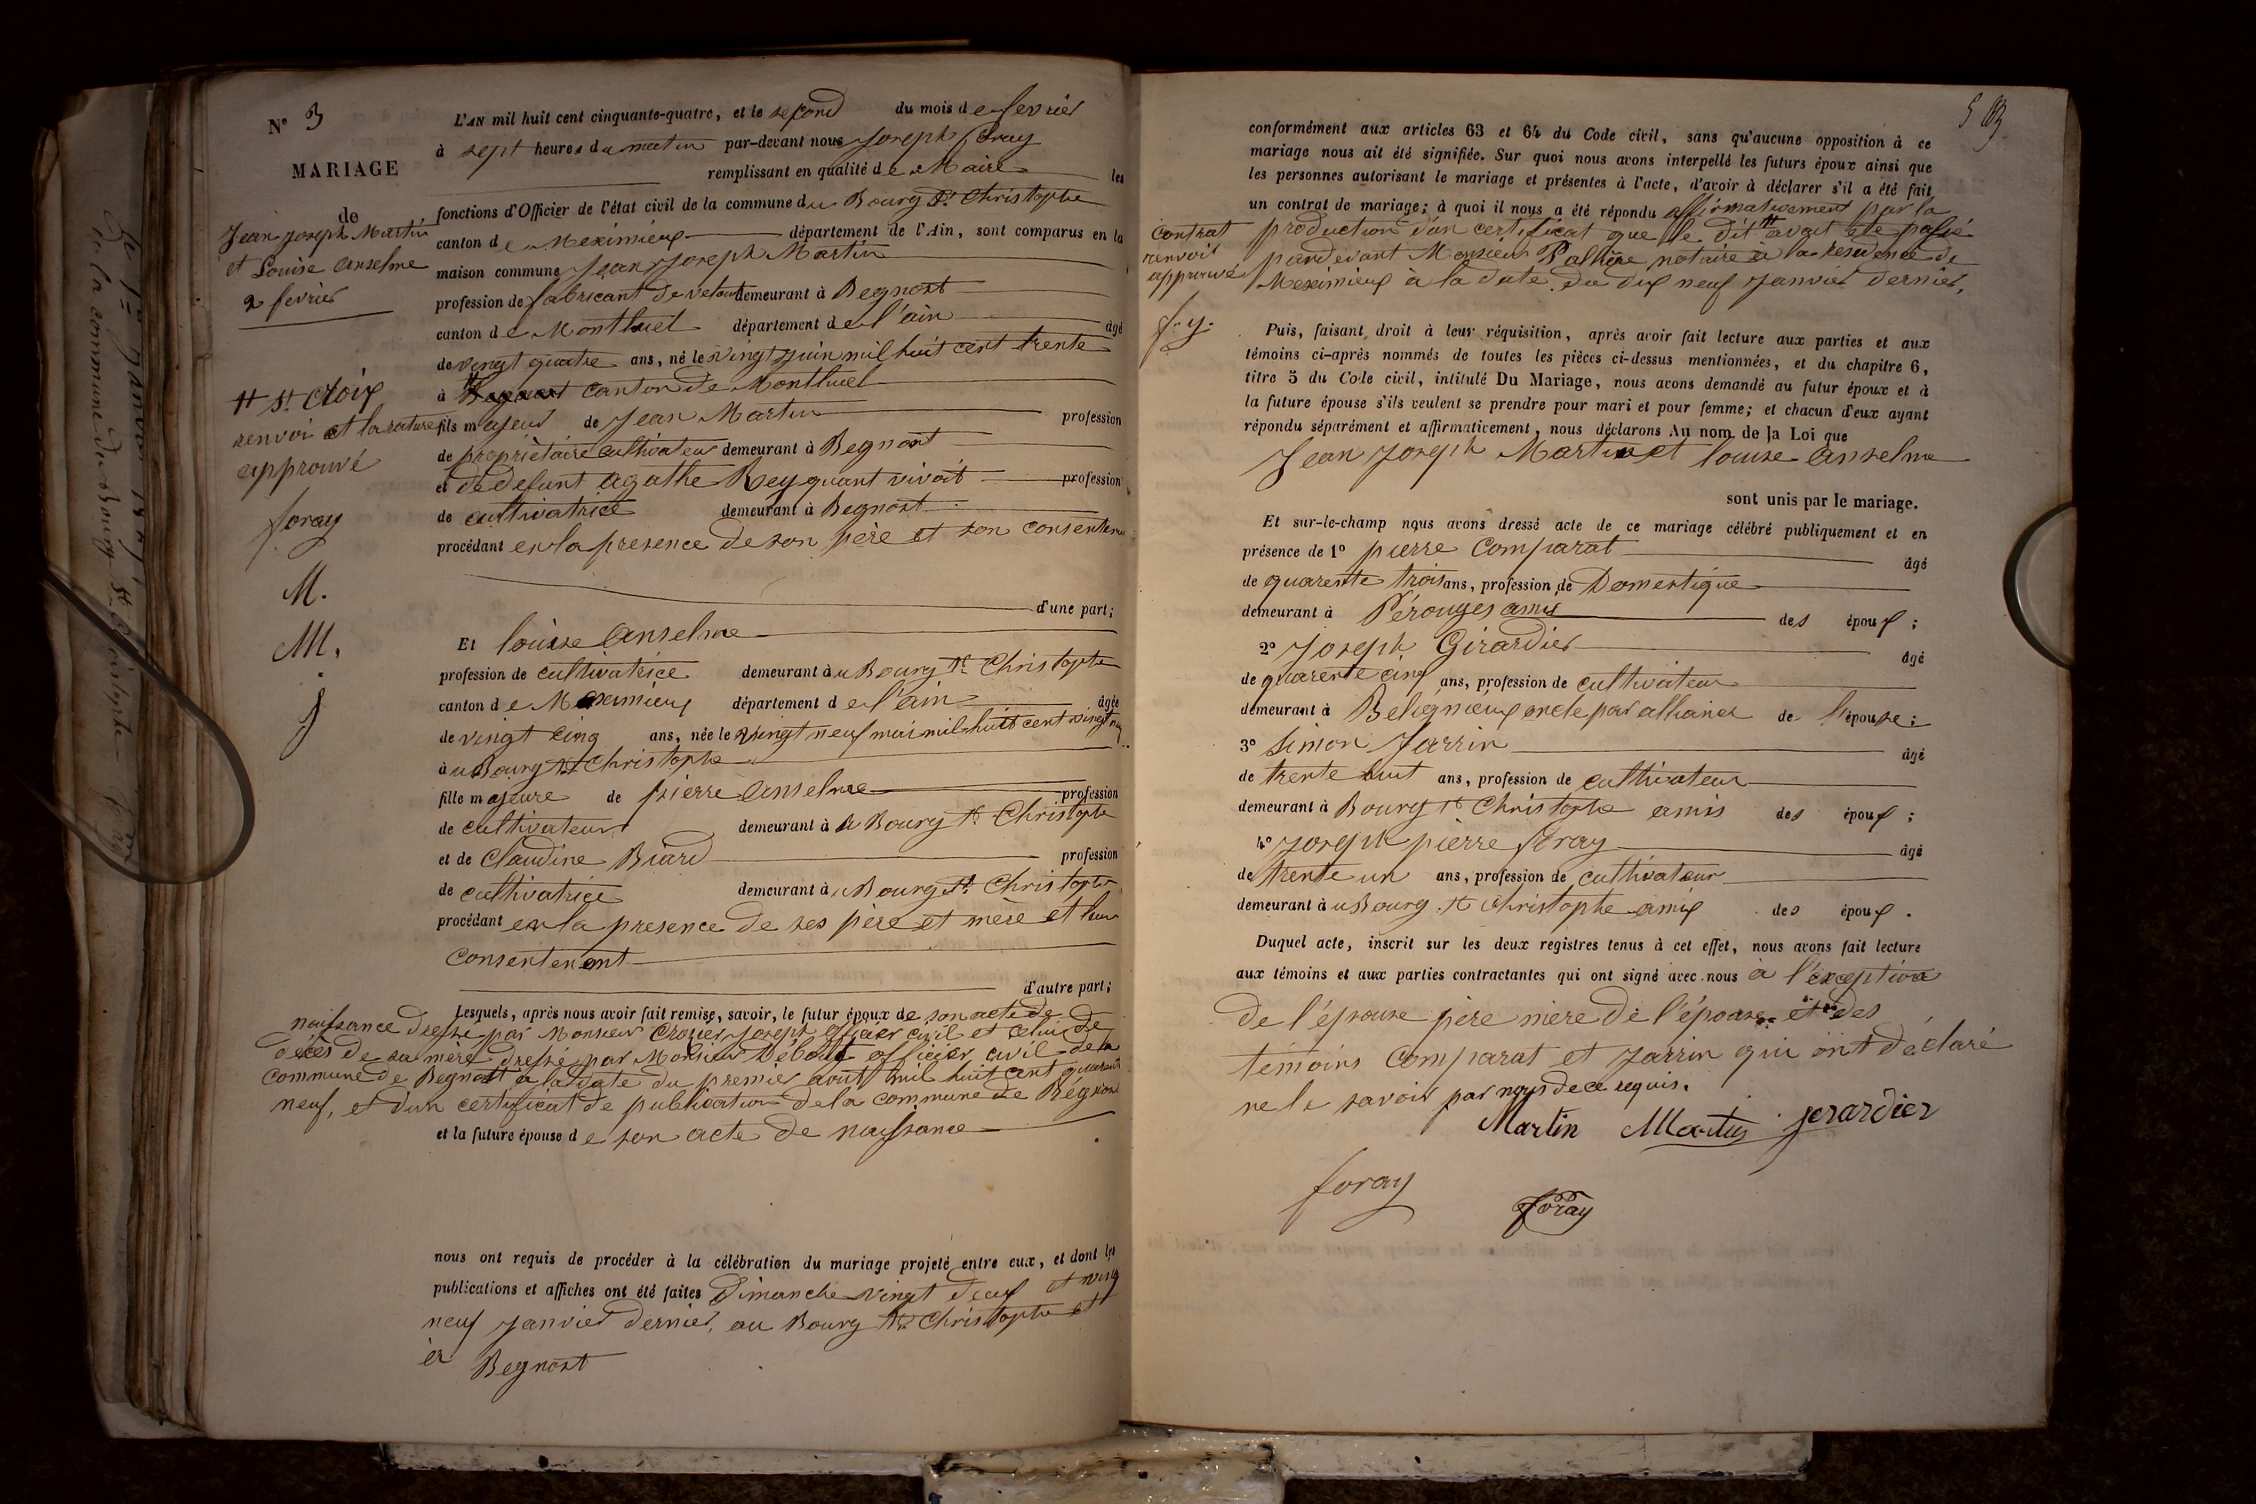 N° 3
MARIAGE
de
Jean joseph Martin
et Louise Anselme
2 fevrier
tt St Cloix
renvoi et la rature
approuvé
foray
M.
M.
j
L'AN mil huit cent cinquante-quatre, et le second du mois de fevrier
à sept heures du matin par-devant nous Joseph foray
remplissant en qualité de Maire les
fonctions d'Officier de l'état civil de la commune du Bourg St Christophe
canton de Meximieux département de l'Ain, sont comparus en la
maison commune Jean Joseph Martin
profession de fabricant de velours demeurant à Begnost
canton de Montluel département de l'ain âgé
de vingt quatre ans, né le vingt juin mil huit cent trente
à tt Begnost canton de Montluel
fils majeur de Jean Martin profession
de propriètaire cultivateur demeurant à Begnost
et de defunt Agathe Rey quant vivoit profession
de cultivatrice demeurant à Begnost
procédant en la presence de son père et son consentem
d'une part;
Et louise Anselme
profession de cultivatrice demeurant à u Bourg St Christophe
canton de Meximieux département de l'ain âgée
de vingt cinq ans, née le vingt neuf mai mil huit cent vingt
à u Bourg St Christophe
fille majeure de pierre Anselme profession
de cultivateur demeurant à u Bourg St Christophe
et de Claudine Biard profession
de cultivatrice demeurant à u Bourg St Christophe
procédant en la presence de ses père et mère et leur
consentement
d'autre part;
Lesquels, après nous avoir fait remise, savoir, le futur époux de son acte de
naissance dressé par Monsieur Crozier Joseph officier civil et celui de
décès de sa mère dressé par Monsieur Débolt officier civil de la
commune de Begnost à la date du premier août mil huit cent quarente
neuf, et d'un certificat de publication de la commune de Bégnost
et la future épouse de son acte de naissance
nous ont requis de procéder à la célébration du mariage projeté entre eux, et dont les
publications et affiches ont été faites Dimanche vingt deux et vingt
neuf Janvier dernier, au Bourg St Christophe et
à Begnost
conformément aux articles 63 et 64 du Code civil, sans qu'aucune opposition à ce
mariage nous ait été signifiée. Sur quoi nous avons interpellé les futurs époux ainsi que
les personnes autorisant le mariage et présentes à l'acte, d'avoir à déclarer s'il a été fait
un contrat de mariage; à quoi il nous a été répondu affirmativement par la
production d'un certificat que le dit tt avait été passé
pardevant Monsieur Pallière notaire à la residence de
Meximieux à la date du dix neuf Janvier dernier,
contrat
renvoit
approuvé
f. y.
Puis, faisant droit à leur réquisition, après avoir fait lecture aux parties et aux
témoins ci-après nommés de toutes les pièces ci-dessus mentionnées, et du chapitre 6,
titre 5 du Code civil, intitulé Du Mariage, nous avons demandé au futur époux et à
la future épouse s'ils veulent se prendre pour mari et pour femme; et chacun d'eux ayant
répondu séparément et affirmativement, nous déclarons Au nom de la Loi que
Jean Joseph Martin et louise Anselme
sont unis par le mariage.
Et sur-le-champ nous avons dressé acte de ce mariage célébré publiquement et en
présence de 1° pierre Comparat âgé
de quarente trois ans, profession de Domestique
demeurant à Pérouges amis des époux;
2° Joseph Girardier âgé
de quarente cinq ans, profession de cultivateur
demeurant à Beligneux oncle par alliance de l'épouse;
3° Simon Jarrin âgé
de trente huit ans, profession de cultivateur
demeurant à Bourg St Christophe amis des époux;
4° Joseph pierre foray âgé
de trente un ans, profession de cultivateur
demeurant à u Bourg St Christophe amis des époux.
Duquel acte, inscrit sur les deux registres tenus à cet effet, nous avons fait lecture
aux témoins et aux parties contractantes qui ont signé avec nous à l'exception
de l'épouse père mère de l'épouse et des
témoins Comparat et Jarrin qui ont déclaré
ne le savoir par nous de ce requis.
Martin Martin jerardier
foray foray